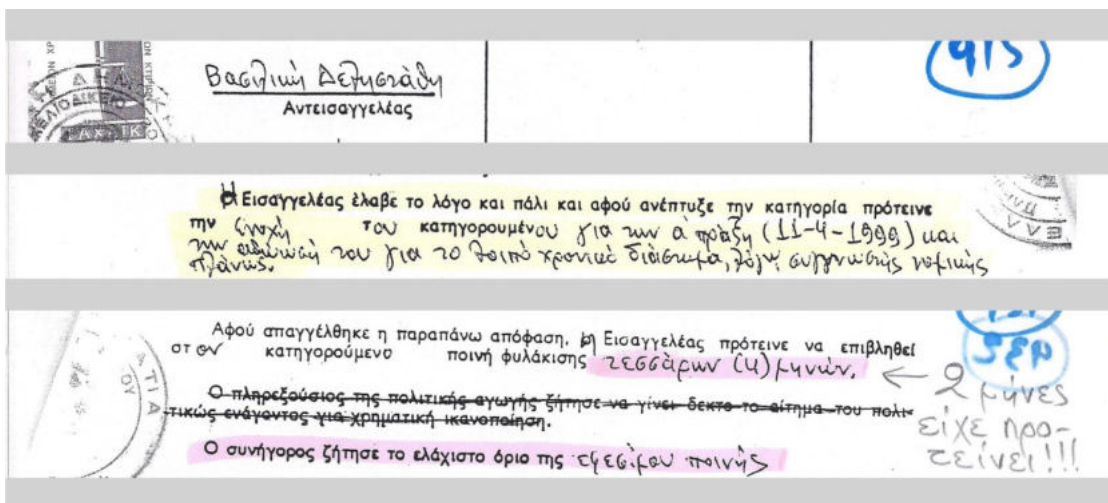 Βασιλική Δεληστάθη
Αντεισαγγελέας
415
Η Εισαγγελέας έλαβε το λόγο και πάλι και αφού ανέπτυξε την κατηγορία πρότεινε
την ένοχή του κατηγορουμένου για την α πράξη (11-4-1999) και
την αθώωσή του για το λοιπό χρονικό διάστημα, λόγω συγγνωστής νομικής
πλάνης.
Αφού απαγγέλθηκε η παραπάνω απόφαση, η Εισαγγελέας πρότεινε να επιβληθεί
στον κατηγορούμενο ποινή φυλάκισης τεσσάρων (4) μηνών.
Ο πληρεξούσιος της πολιτικής αγωγής ζήτησε να γίνει δεκτο το αίτημα του πολι-
τικώς ενάγοντος για χρηματική ικανοποίηση.
Ο συνήγορος ζήτησε το ελάχιστο όριο της εφεσίμου ποινής
2 μήνες
είχε προ-
τείνει!!!